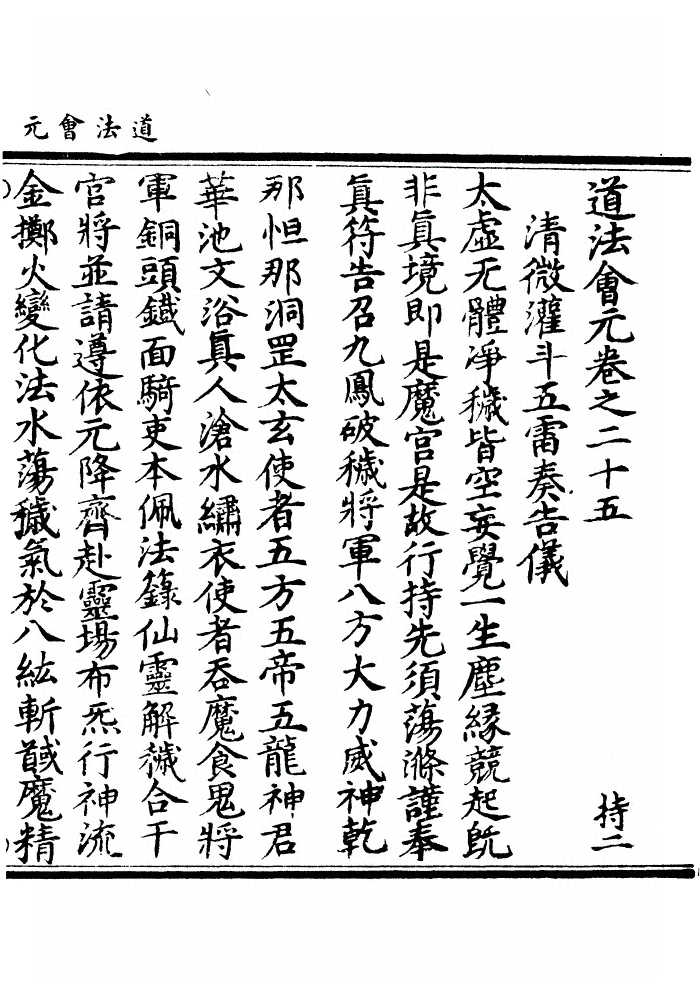 道法會元
道法會元卷之二十五
持二
清微灌斗五雷奏告儀
太虛无體凈穢皆空妄覺一生塵緣競起旣
非眞境即是魔宮是故行持先須蕩滌謹奉
眞符告召九鳳破穢將軍八方大力威神乾
那怛那洞罡太玄使者五方五帝五龍神君
華池文浴眞人滄水繡衣使者吞魔食鬼將
軍銅頭鐵面騎吏本佩法籙仙靈解穢合干
官將並請遵依元降齊赴靈場布炁行神流
金擲火變化法水蕩穢氣於八紘斬馘魔精